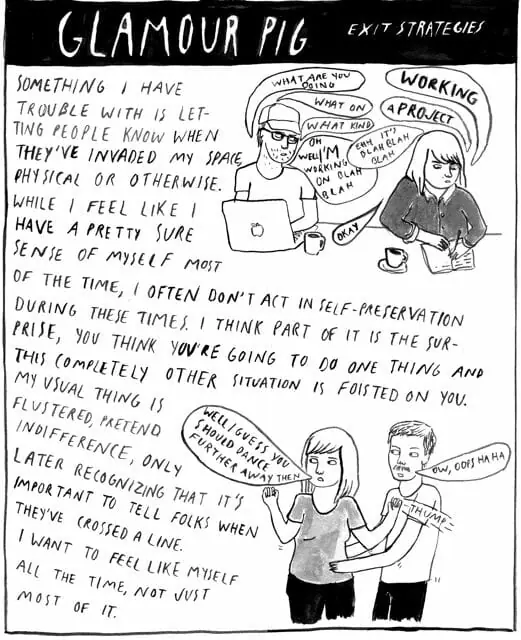 GLAMOUR PIG
EXIT STRATEGIES
SOMETHING I HAVE
TROUBLE WITH IS LET-
TING PEOPLE KNOW WHEN
THEY'VE INVADED MY SPACE,
PHYSICAL OR OTHERWISE.
WHILE I FEEL LIKE I
HAVE A PRETTY SURE
SENSE OF MYSELF MOST
OF THE TIME, I OFTEN DON'T ACT IN SELF-PRESERVATION
DURING THESE TIMES. I THINK PART OF IT IS THE SUR-
PRISE, YOU THINK YOU'RE GOING TO DO ONE THING AND
THIS COMPLETELY OTHER SITUATION IS FOISTED ON YOU.
MY USUAL THING IS
FLUSTERED, PRETEND
INDIFFERENCE, ONLY
LATER RECOGNIZING THAT IT'S
IMPORTANT TO TELL FOLKS WHEN
THEY'VE CROSSED A LINE.
I WANT TO FEEL LIKE MYSELF
ALL THE TIME, NOT JUST
MOST OF IT.
WHAT ARE YOU
DOING
WORKING
WHAT ON
A PROJECT
WHAT KIND
EHH IT'S
BLAH BLAH
BLAH
OH
WELL I'M
WORKING
ON BLAH
BLAH
OKAY
WELL I GUESS YOU
SHOULD DANCE
FURTHER AWAY THEN
OW, OOPS HA HA
-THUMP-